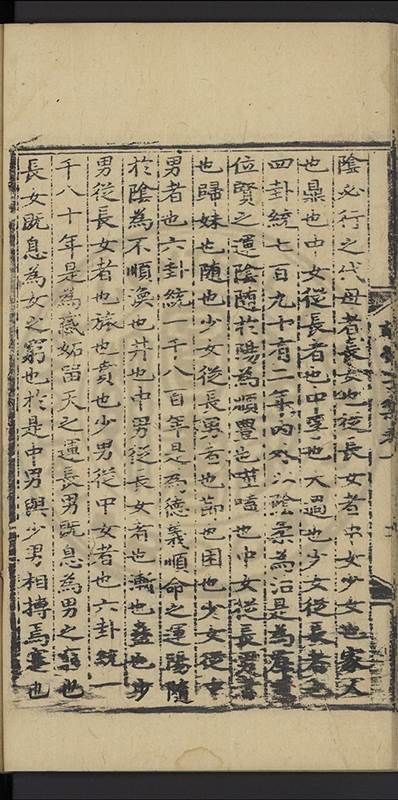 陰必行之代母者長女也從長女者中女少女也家人
也鼎也中女從長者也中孚也大過也少女從長者也
四卦統七百九十有二年內外以陰柔為治是為
位賢之運陰隨於陽為順豐也噬嗑也中女從長男者
也歸妹也隨也少女從長男者也節也困也少女從中
男者也六卦統一千八百年是為德義順命之運陽隨
於陰為不順渙也井也中男從長女者也漸也蠱也少
男從長女者也旅也賁也少男從中女者也六卦統一
千八十年是為惑妬留天之運長男既息為男之窮也
長女既息為女之窮也於是中男與少男相搏焉蹇也